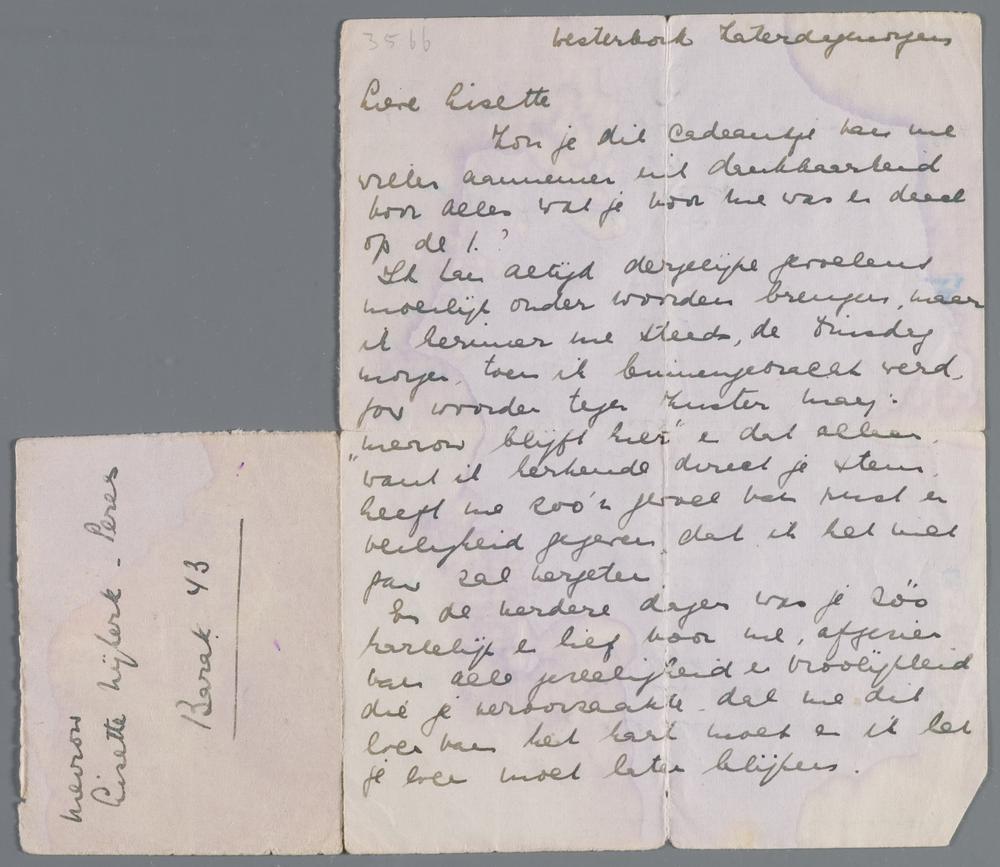 3566
Westerbork Zaterdagmorgen
Lieve Lisette
Zou je dit cadeautje van me
willen aannemen uit dankbaarheid
voor alles wat je voor me was en deed
op de 1.?
Ik kan altijd dergelijke gevoelens
moeilijk onder woorden brengen, maar
ik herinner me steeds, de Dinsdag
morgen, toen ik binnengebracht werd,
jouw woorden tegen Zuster Mary:
"mevrouw blijft hier" en dat alleen,
want ik herkende direct je stem,
heeft me zoo'n gevoel van rust en
veiligheid gegeven, dat ik het niet
gauw zal vergeten.
En de verdere dagen was je zóó
hartelijk en lief voor me, afgezien
van alle gezelligheid en vroolijkheid
die je veroorzaakte, dat me dit
toch van het hart moet en ik het
je toch moet laten blijken.
Mevrouw
Lisette Nijkerk - Peres
Barak 43